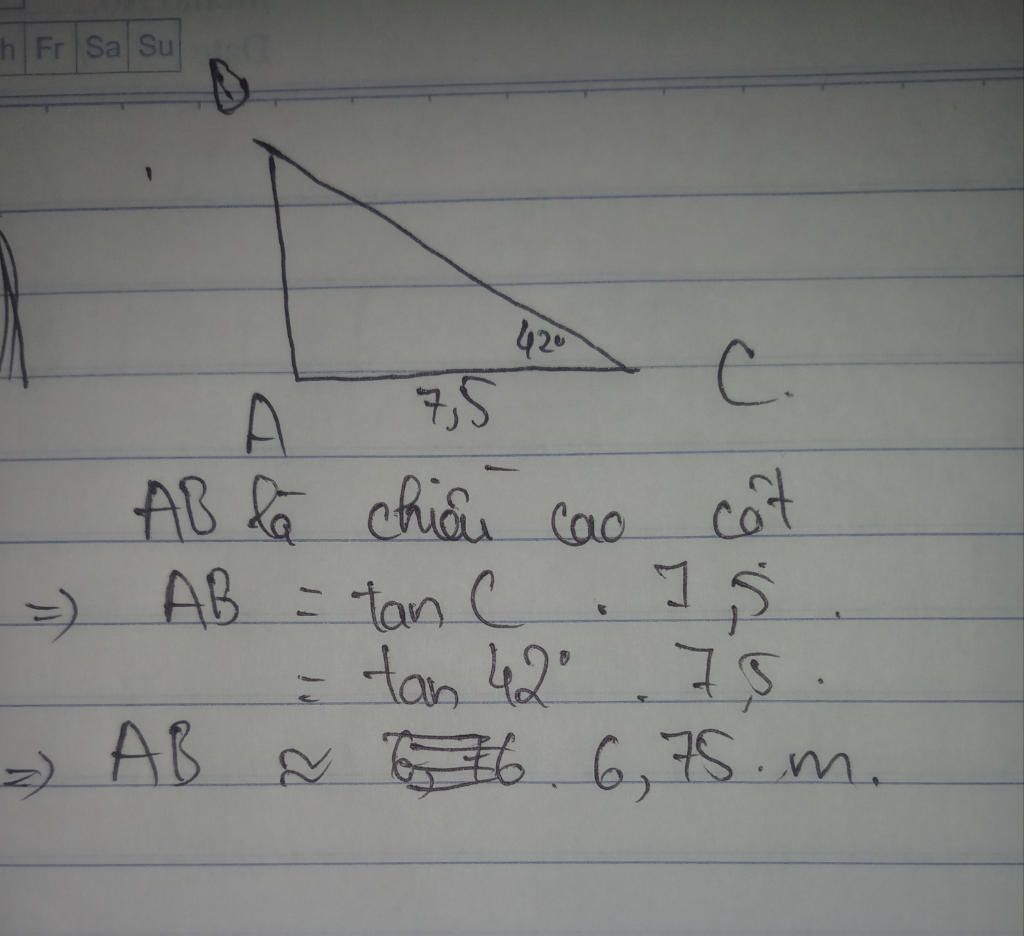 h Fr Sa Su
B
42°
C.
7,5
A
AB là chiều cao cột
=> AB = tan C . 7,5 .
= tan 42° . 7,5 .
=> AB ≈ 6,75 . m.